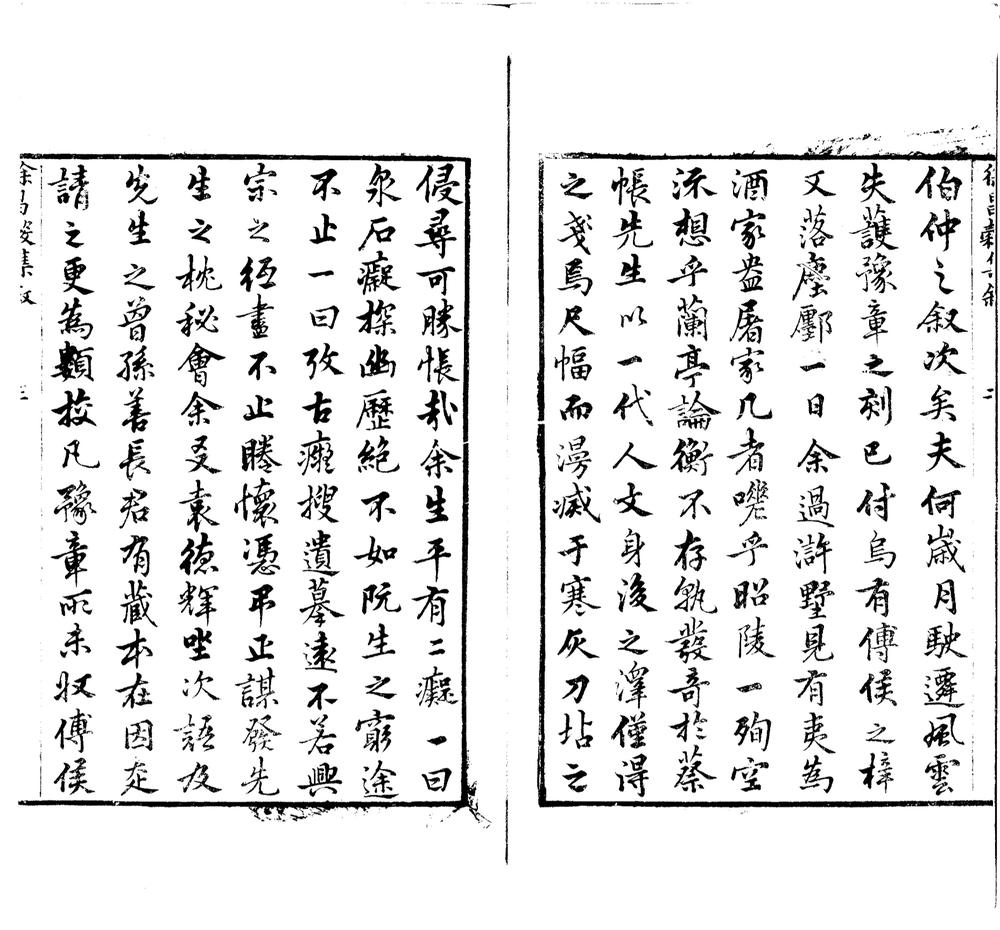 徐昌穀集叙
二
伯仲之叙次矣夫何歲月駛遷風雲
失護豫章之刻已付烏有傅侯之梓
又落塵鄽一日余過滸墅見有夷為
酒家盎屠家几者嘅乎昭陵一殉空
深想乎蘭亭論衡不存孰發奇於蔡
帳先生以一代人文身後之澤僅得
之戔焉尺幅而漫滅于寒灰刀坫之
侵尋可勝悵哉余生平有二癡一曰
泉石癡探幽歷絕不如阮生之窮途
不止一曰攷古癡搜遺摹遠不若興
宗之經畫不止睠懷憑弔正謀發先
生之枕秘會余友袁德輝坐次語及
先生之曾孫善長君有藏本在因走
請之更為類挍凡豫章所未收傅侯
徐昌穀集叙
三